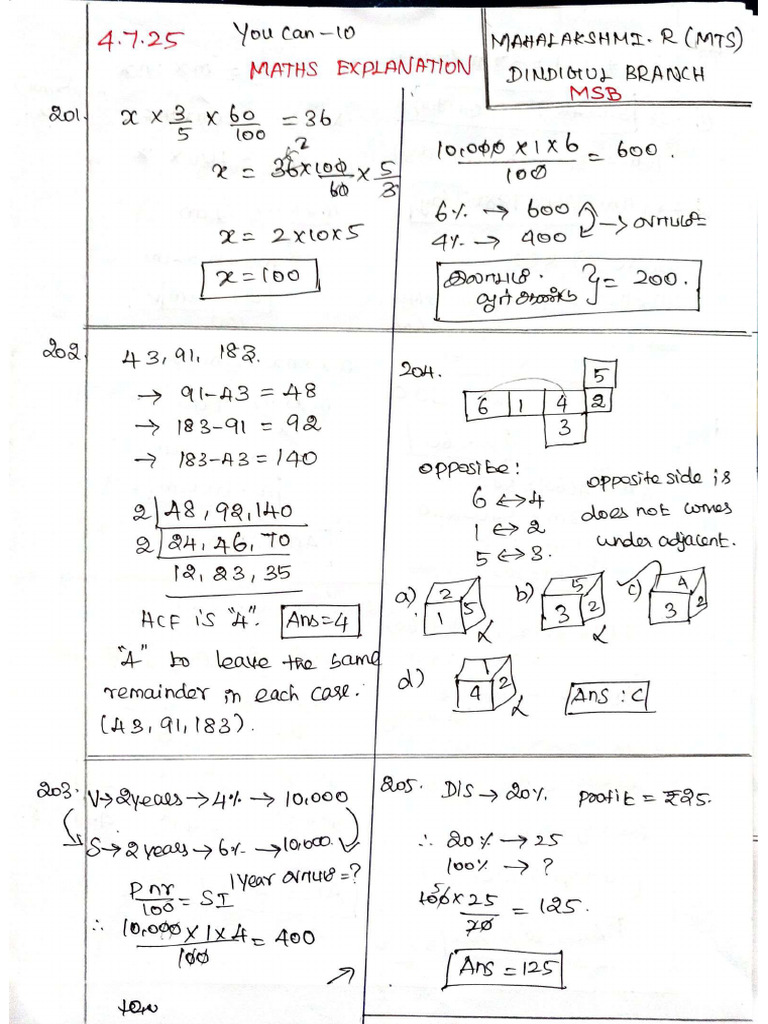 4.7.25
You Can -10
MATHS EXPLANATION
MAHALAKSHMI. R (MTS)
DINDIGUL BRANCH
MSB
201. x × 3/5 × 60/100 = 36
x = 36×100/60 × 5/3
2
x = 2×10×5
x = 100
202. 43, 91, 183.
→ 91-43 = 48
→ 183-91 = 92
→ 183-43 = 140
2 | 48, 92, 140
2 | 24, 46, 70
12, 23, 35
HCF is "4". Ans=4
"4" to leave the same
remainder in each case.
(43, 91, 183).
203. V→2years→4%→10,000
S→2years→6%→10,000.
1 year லாபம் = ?
Pnr/100 = SI
∴ 10,000×1×4/100 = 400
10,000×1×6/100 = 600.
6% → 600
4% → 400
→ லாபம்
= 200.
204.
5
6 1 4 2
3
opposite:
6 ↔ 4
1 ↔ 2
5 ↔ 3.
opposite side is
does not comes
under adjacent.
a) 2 1 5
b) 5 3 2
c) 4 3 2
d) 1 4 2
Ans : C
205. DIS → 20% Profit = ₹25.
∴ 20% → 25
100% → ?
5
100×25/20 = 125.
Ans = 125